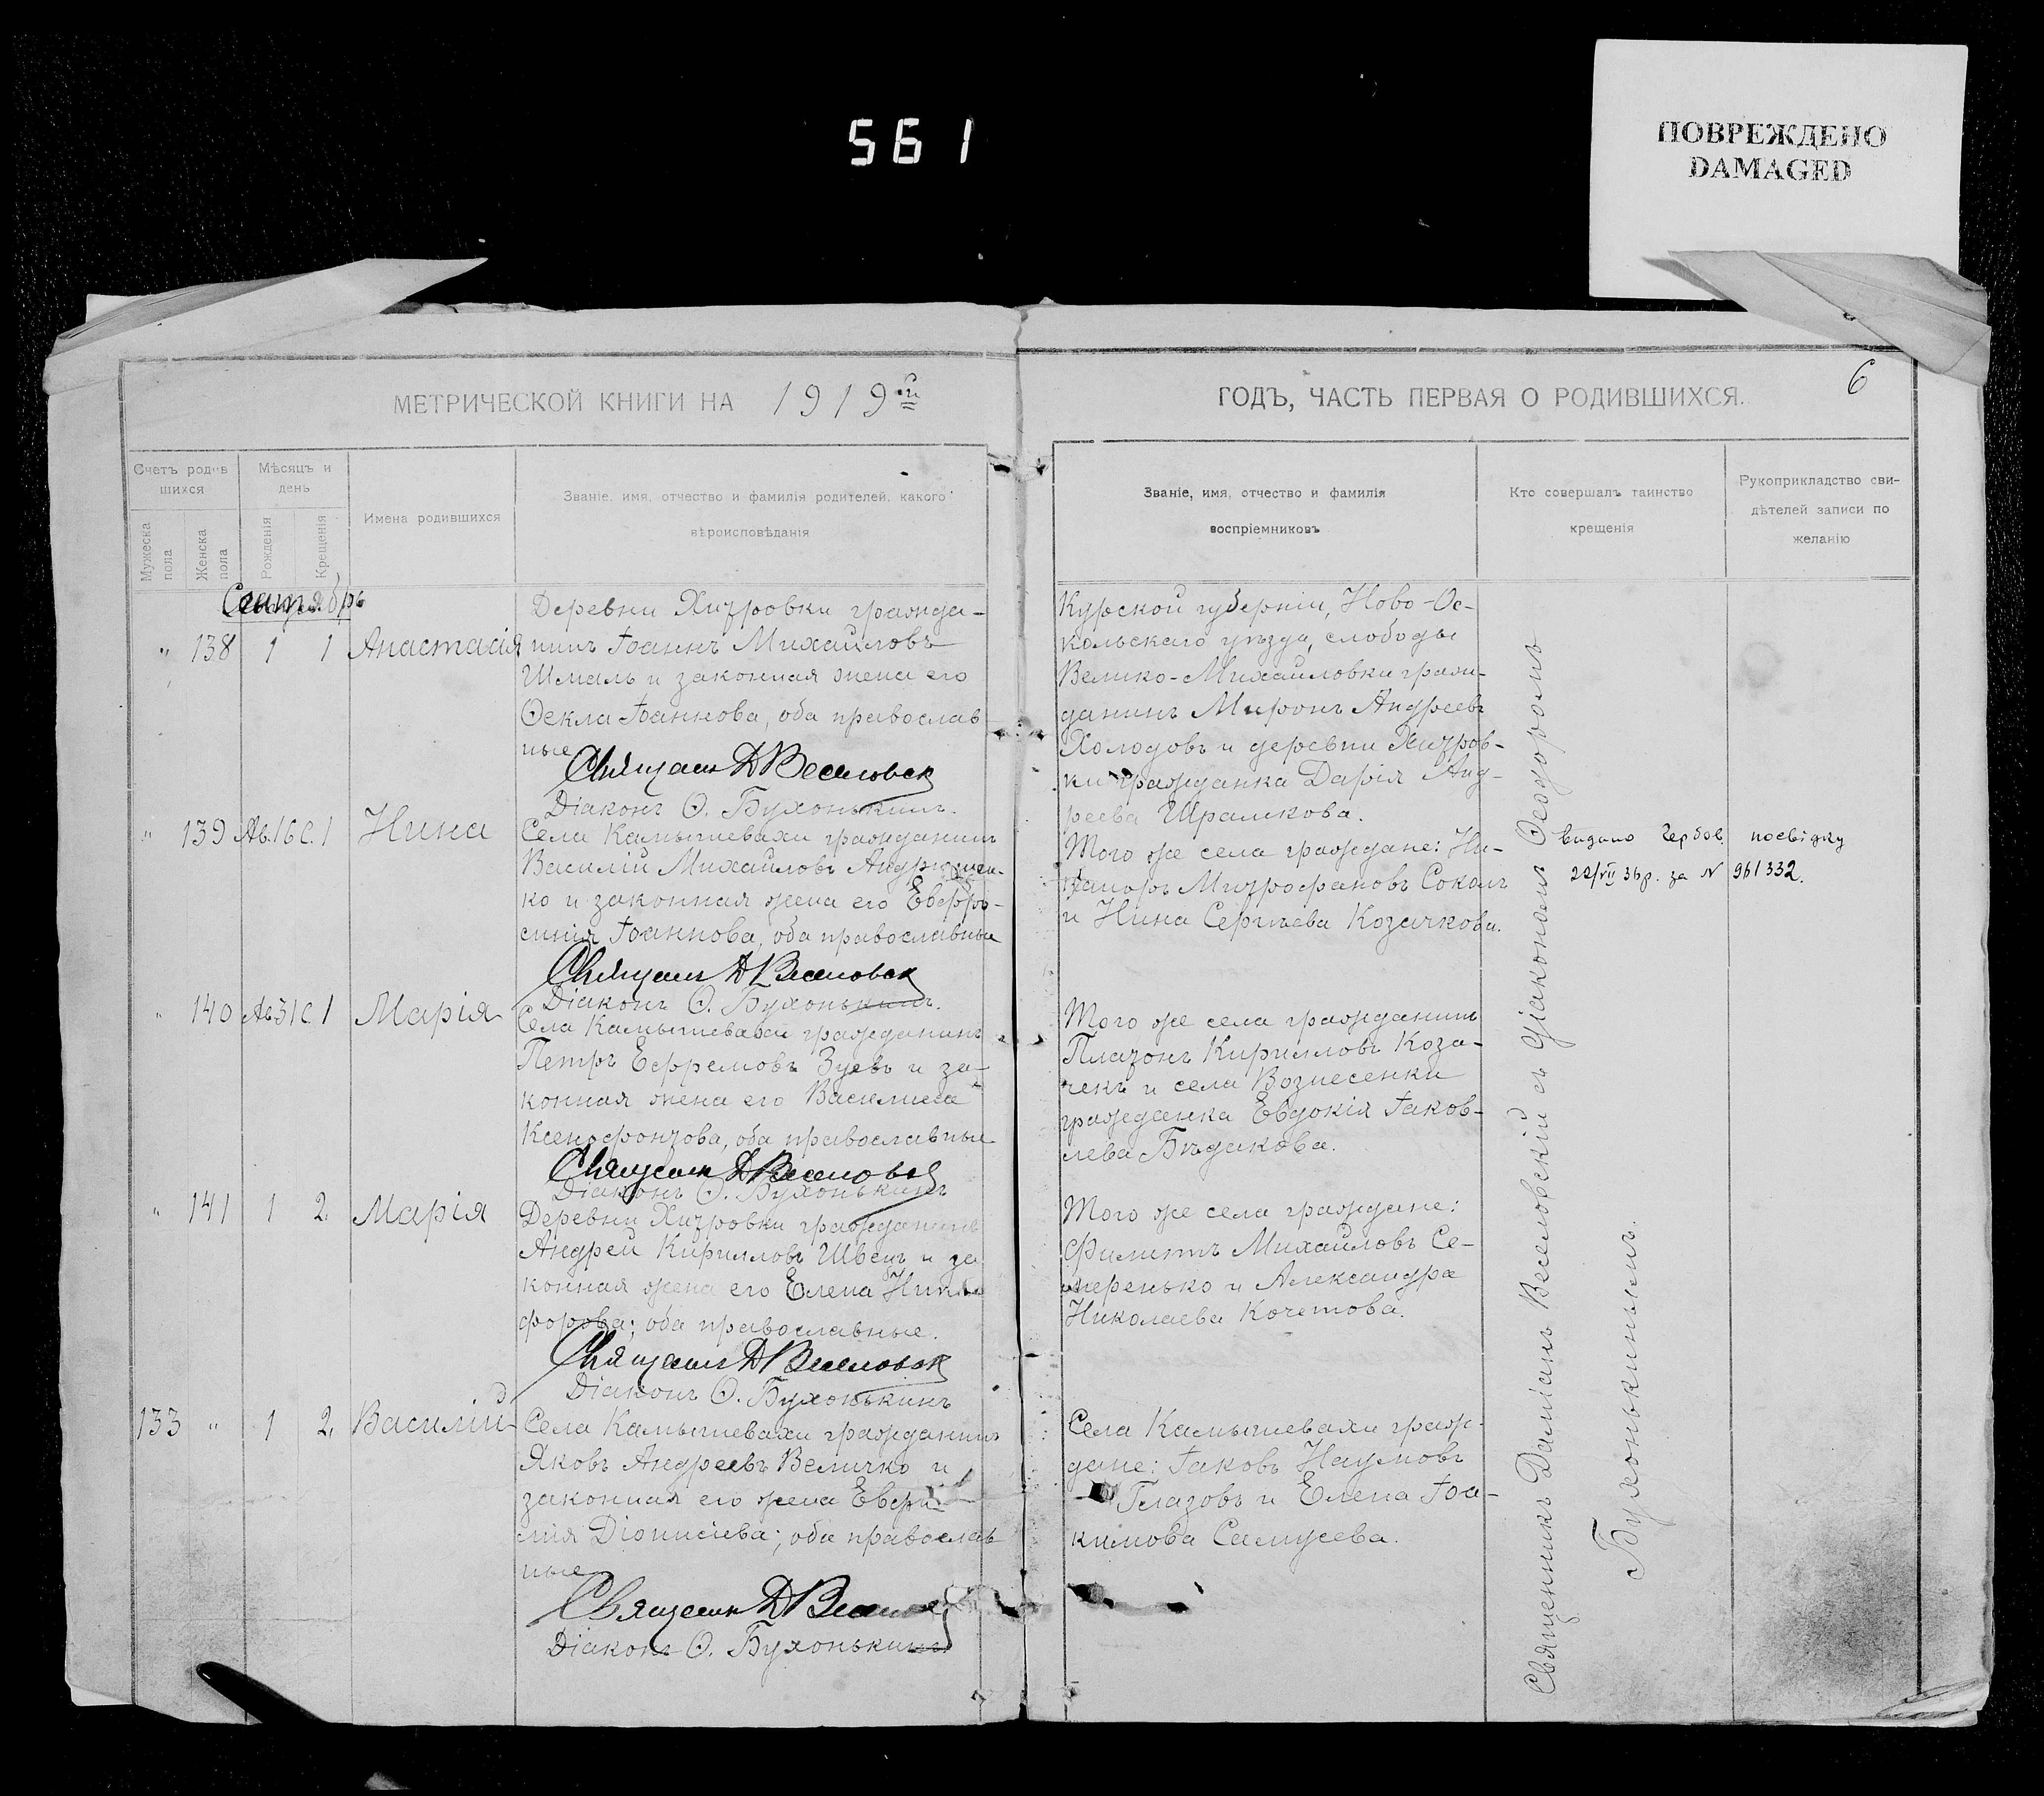 561
ПОВРЕЖДЕНО
DAMAGED
6
МЕТРИЧЕСКОЙ КНИГИ НА 1919й
ГОДЪ, ЧАСТЬ ПЕРВАЯ О РОДИВШИХСЯ.
Счетъ родив
шихся
Мужеска
пола
Женска
пола
Мѣсяцъ и
день
Рожденія
Крещенія
Имена родившихся
Званіе, имя, отчество и фамилія родителей, какого
вѣроисповѣданія
Званіе, имя, отчество и фамилія
воспріемниковъ
Кто совершалъ таинство
крещенія
Рукоприкладство сви-
дѣтелей записи по
желанію
Сентябрь
" 138 1 1 Анастасія
Деревни Хитровки гражда-
нинъ Іоаннъ Михайловъ
Шмаль и законная жена его
Ѳекла Іоаннова, оба православ
ные
Священ Д Веселовск
Діаконъ Ѳ. Бухонькинъ.
Курской губерніи, Ново-Ос-
кольскаго уѣзда, слободы
Велико-Михайловки граж-
данинъ Миронъ Андреевъ
Холодовъ и деревни Хитров-
ки гражданка Дарія Анд-
реева Шрамкова.
" 139 Ав.16 С.1 Нина
Села Камышевахи гражданинъ
Василій Михайловъ
ко и законная жена его Евфро-
синія Іоаннова, оба православные
Священ Д Веселовск
Діаконъ Ѳ. Бухонькинъ.
Того же села граждане: Ни-
каноръ Митрофановъ Соколъ
и Нина Сергѣева Козачкова.
видано Гербов. посвідку
22/VII 36р. за № 961332.
" 140 Ав31 С1 Марія
Села Камышевахи гражданинъ
Петръ Ефремовъ Зуевъ и за-
конная жена его Василиса
Ксенофонтова, оба православные
Священ Д Веселовск
Діаконъ Ѳ. Бухонькинъ
Того же села гражданинъ
Платонъ Кирилловъ Коза-
чекъ и села Вознесенки
гражданка Евдокія Іаков-
лева Бѣдакова.
" 141 1 2. Марія
Деревни Хитровки гражданинъ
Андрей Кирилловъ Швецъ и за
конная жена его Елена Ники
форова; оба православные.
Священ Д Веселовск
Діаконъ Ѳ. Бухонькинъ
Того же села граждане:
Филиппъ Михайловъ Се-
меренько и Александра
Николаева Кочетова.
133 " 1 2. Василій
Села Камышевахи гражданинъ
Яковъ Андреевъ Величко и
законная его жена Евфи
мія Діонисіева; оба православ
ные
Священ Д Веселовск
Діаконъ Ѳ. Бухонькинъ
Села Камышевахи граж-
дане: Іаковъ Наумовъ
Глазовъ и Елена Іоа-
кимова Самусева.
Священникъ Даміанъ Веселовскій съ діакономъ Ѳеодоромъ
Бухонькинымъ.